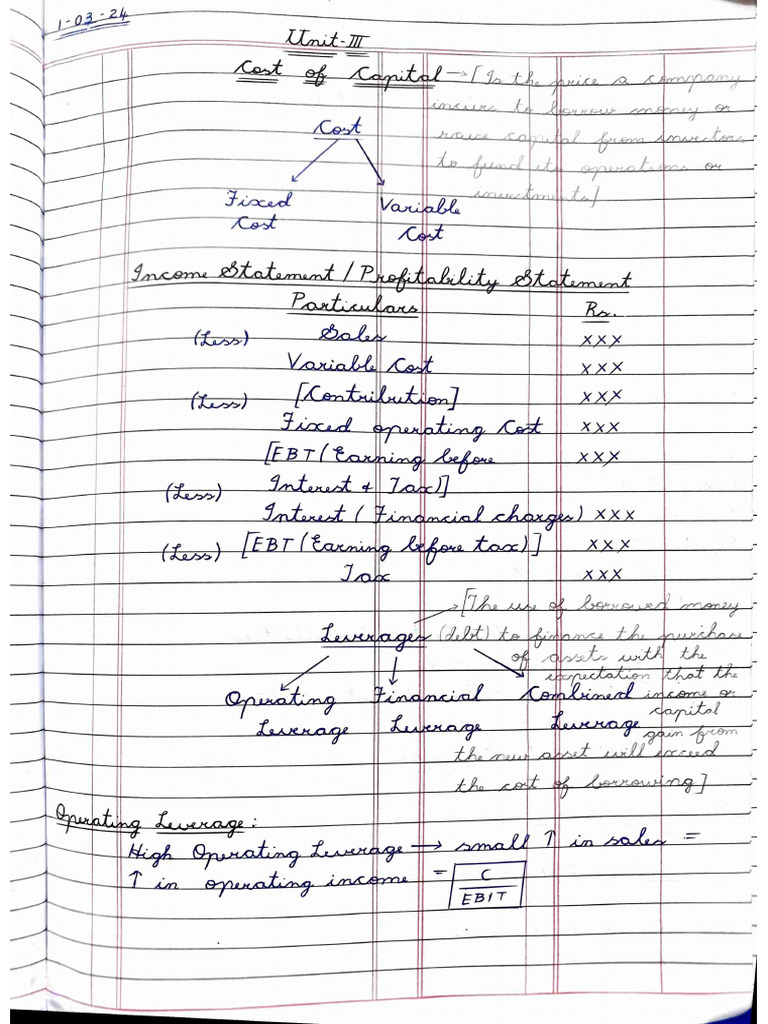 1-03-24
Unit-III
Cost of Capital → [Is the price a company
incurs to borrow money or
Cost
raise capital from investors
to fund its operations or
investments]
Fixed Variable
Cost Cost
Income Statement / Profitability Statement
Particulars Rs.
(Less) Sales xxx
Variable Cost xxx
(Less) [Contribution] xxx
Fixed operating Cost xxx
[EBT (Earning before xxx
(Less) Interest & Tax)]
Interest (Financial charges) xxx
(Less) [EBT (Earning before tax)] xxx
Tax xxx
[The use of borrowed money
Leverages (debt) to finance the purchase
of assets with the
expectation that the
Operating Financial Combined income or
Leverage Leverage Leverage capital
gain from
the new asset will exceed
the cost of borrowing]
Operating Leverage:
High Operating Leverage → small ↑ in sales =
↑ in operating income = C
EBIT